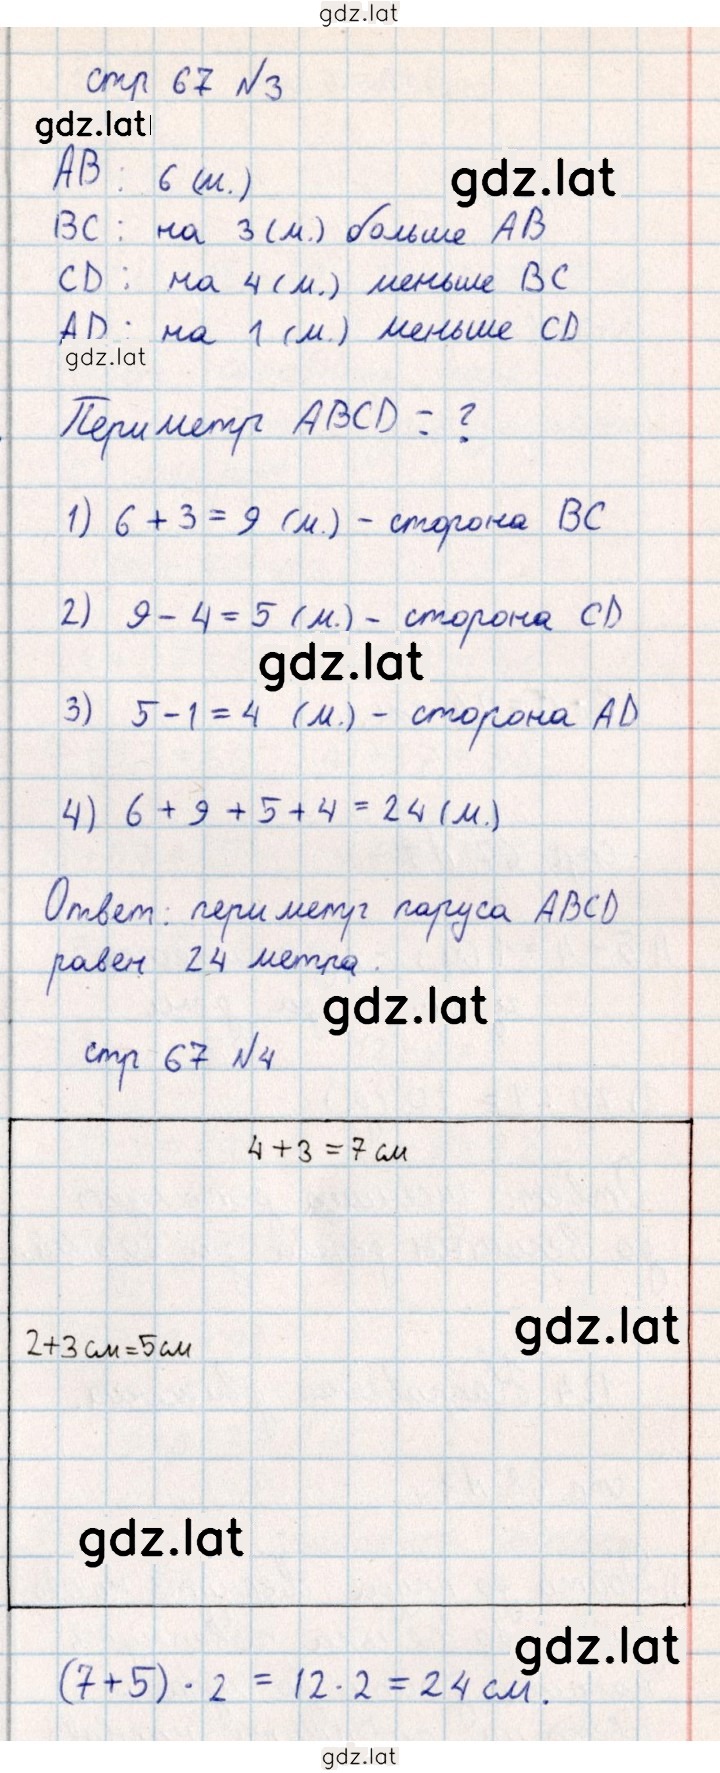 gdz.lat
стр 67 №3
gdz.lat
АВ: 6 (м.)
gdz.lat
ВС: на 3 (м.) больше АВ
CD: на 4 (м.) меньше ВС
AD: на 1 (м.) меньше CD
gdz.lat
Периметр ABCD = ?
1) 6 + 3 = 9 (м.) - сторона ВС
2) 9 - 4 = 5 (м.) - сторона CD
gdz.lat
3) 5 - 1 = 4 (м.) - сторона AD
4) 6 + 9 + 5 + 4 = 24 (м.)
Ответ: периметр паруса ABCD
равен 24 метра.
gdz.lat
стр 67 №4
4 + 3 = 7 см
gdz.lat
2 + 3 см = 5 см
gdz.lat
gdz.lat
(7 + 5) · 2 = 12 · 2 = 24 см.
gdz.lat